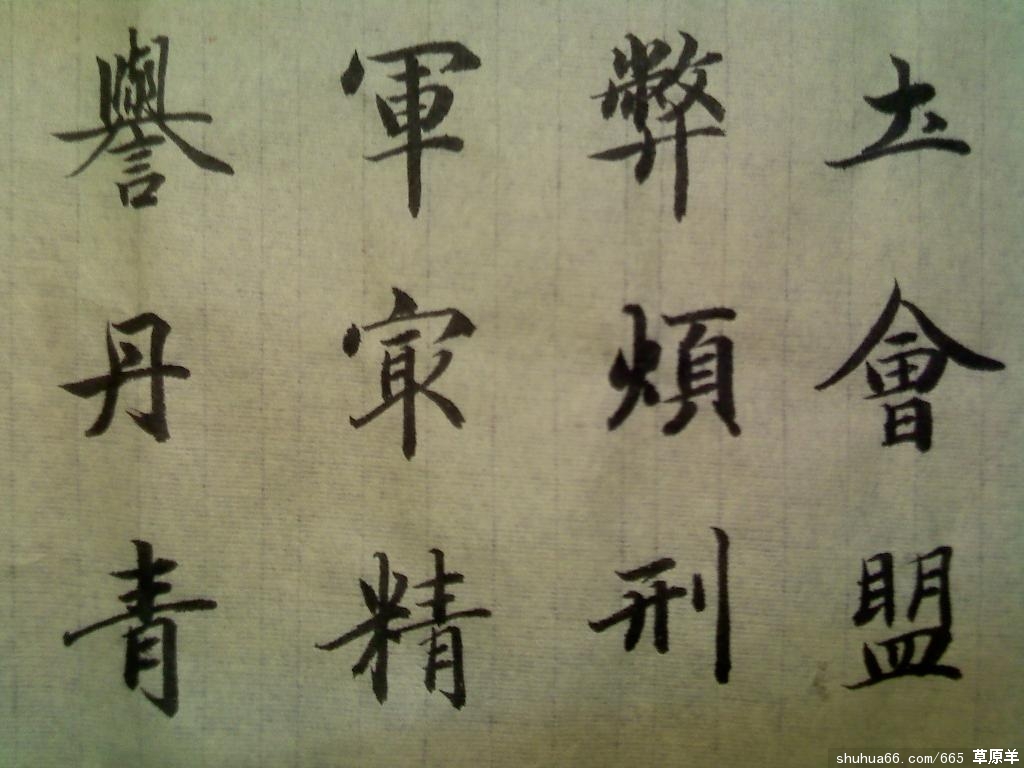 土會盟
弊煩刑
軍㝡精
譽丹青
shuhua66.com/665 草原羊